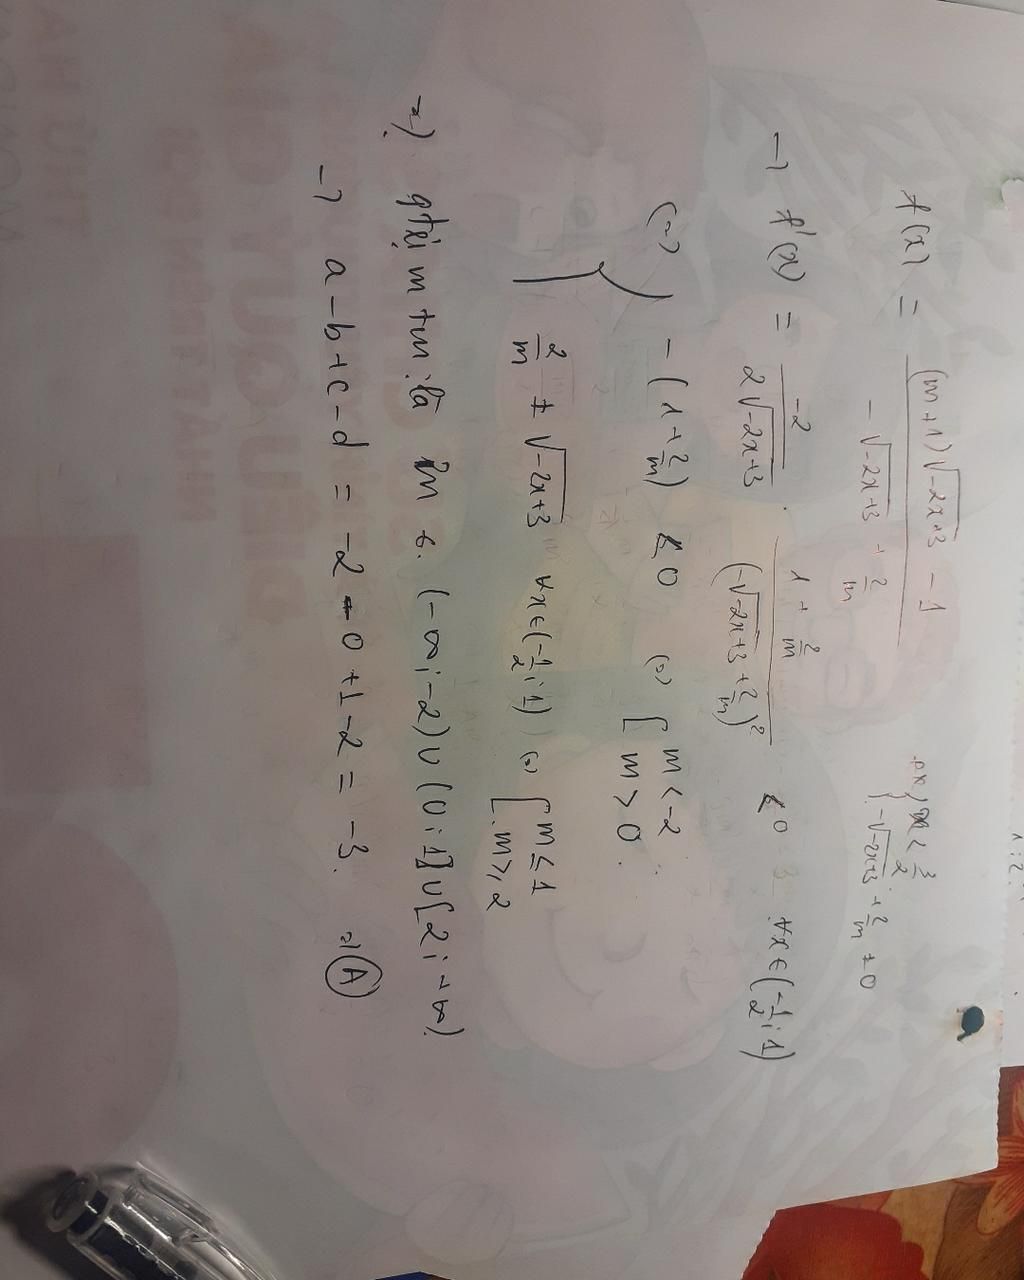 f(x) = ((m+1)√(-2x+3) - 1) / (-√(-2x+3) + 2/m)
ĐK { x < 3/2 ; -√(-2x+3) + 2/m ≠ 0
→ f'(x) = -2 / (2√(-2x+3)) . (1 + 2/m) / (-√(-2x+3) + 2/m)² < 0 ∀x ∈ (-1/2; 1)
(=) { -(1 + 2/m) < 0 (=) [ m < -2 ; m > 0.
2/m ≠ √(-2x+3) ∀x ∈ (-1/2; 1) (=) [ m ≤ 1 ; m ≥ 2
=) gtrị m t/m: là m ∈ (-∞; -2) ∪ (0; 1] ∪ [2; +∞)
→ a - b + c - d = -2 - 0 + 1 - 2 = -3. =) A